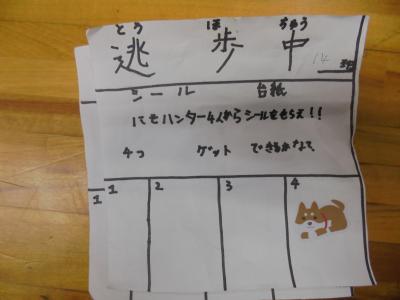 とう ほ ちゅう
逃 歩 中
14
シール 台紙
ハンター4人からシールをもらえ!!
4つ ゲット できるかな
1 1 2 3 4